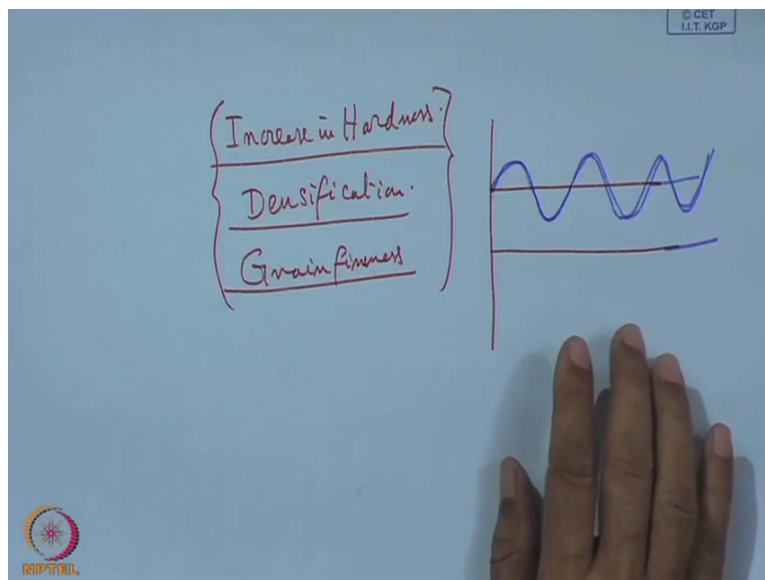 © CET
I.I.T. KGP
Increase in Hardness.
Densification.
Grain fineness
NPTEL